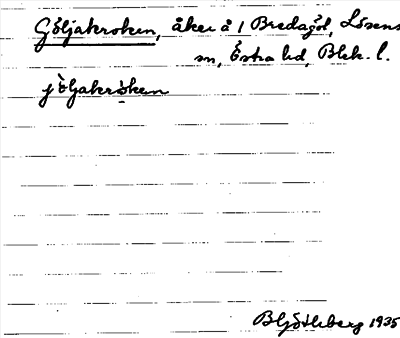 Göljakroken, åker å 1 Bredagöl, Lösens
sn, Östra hd, Blek. l.
jö̀ljakròken
B Hjöthberg 1935